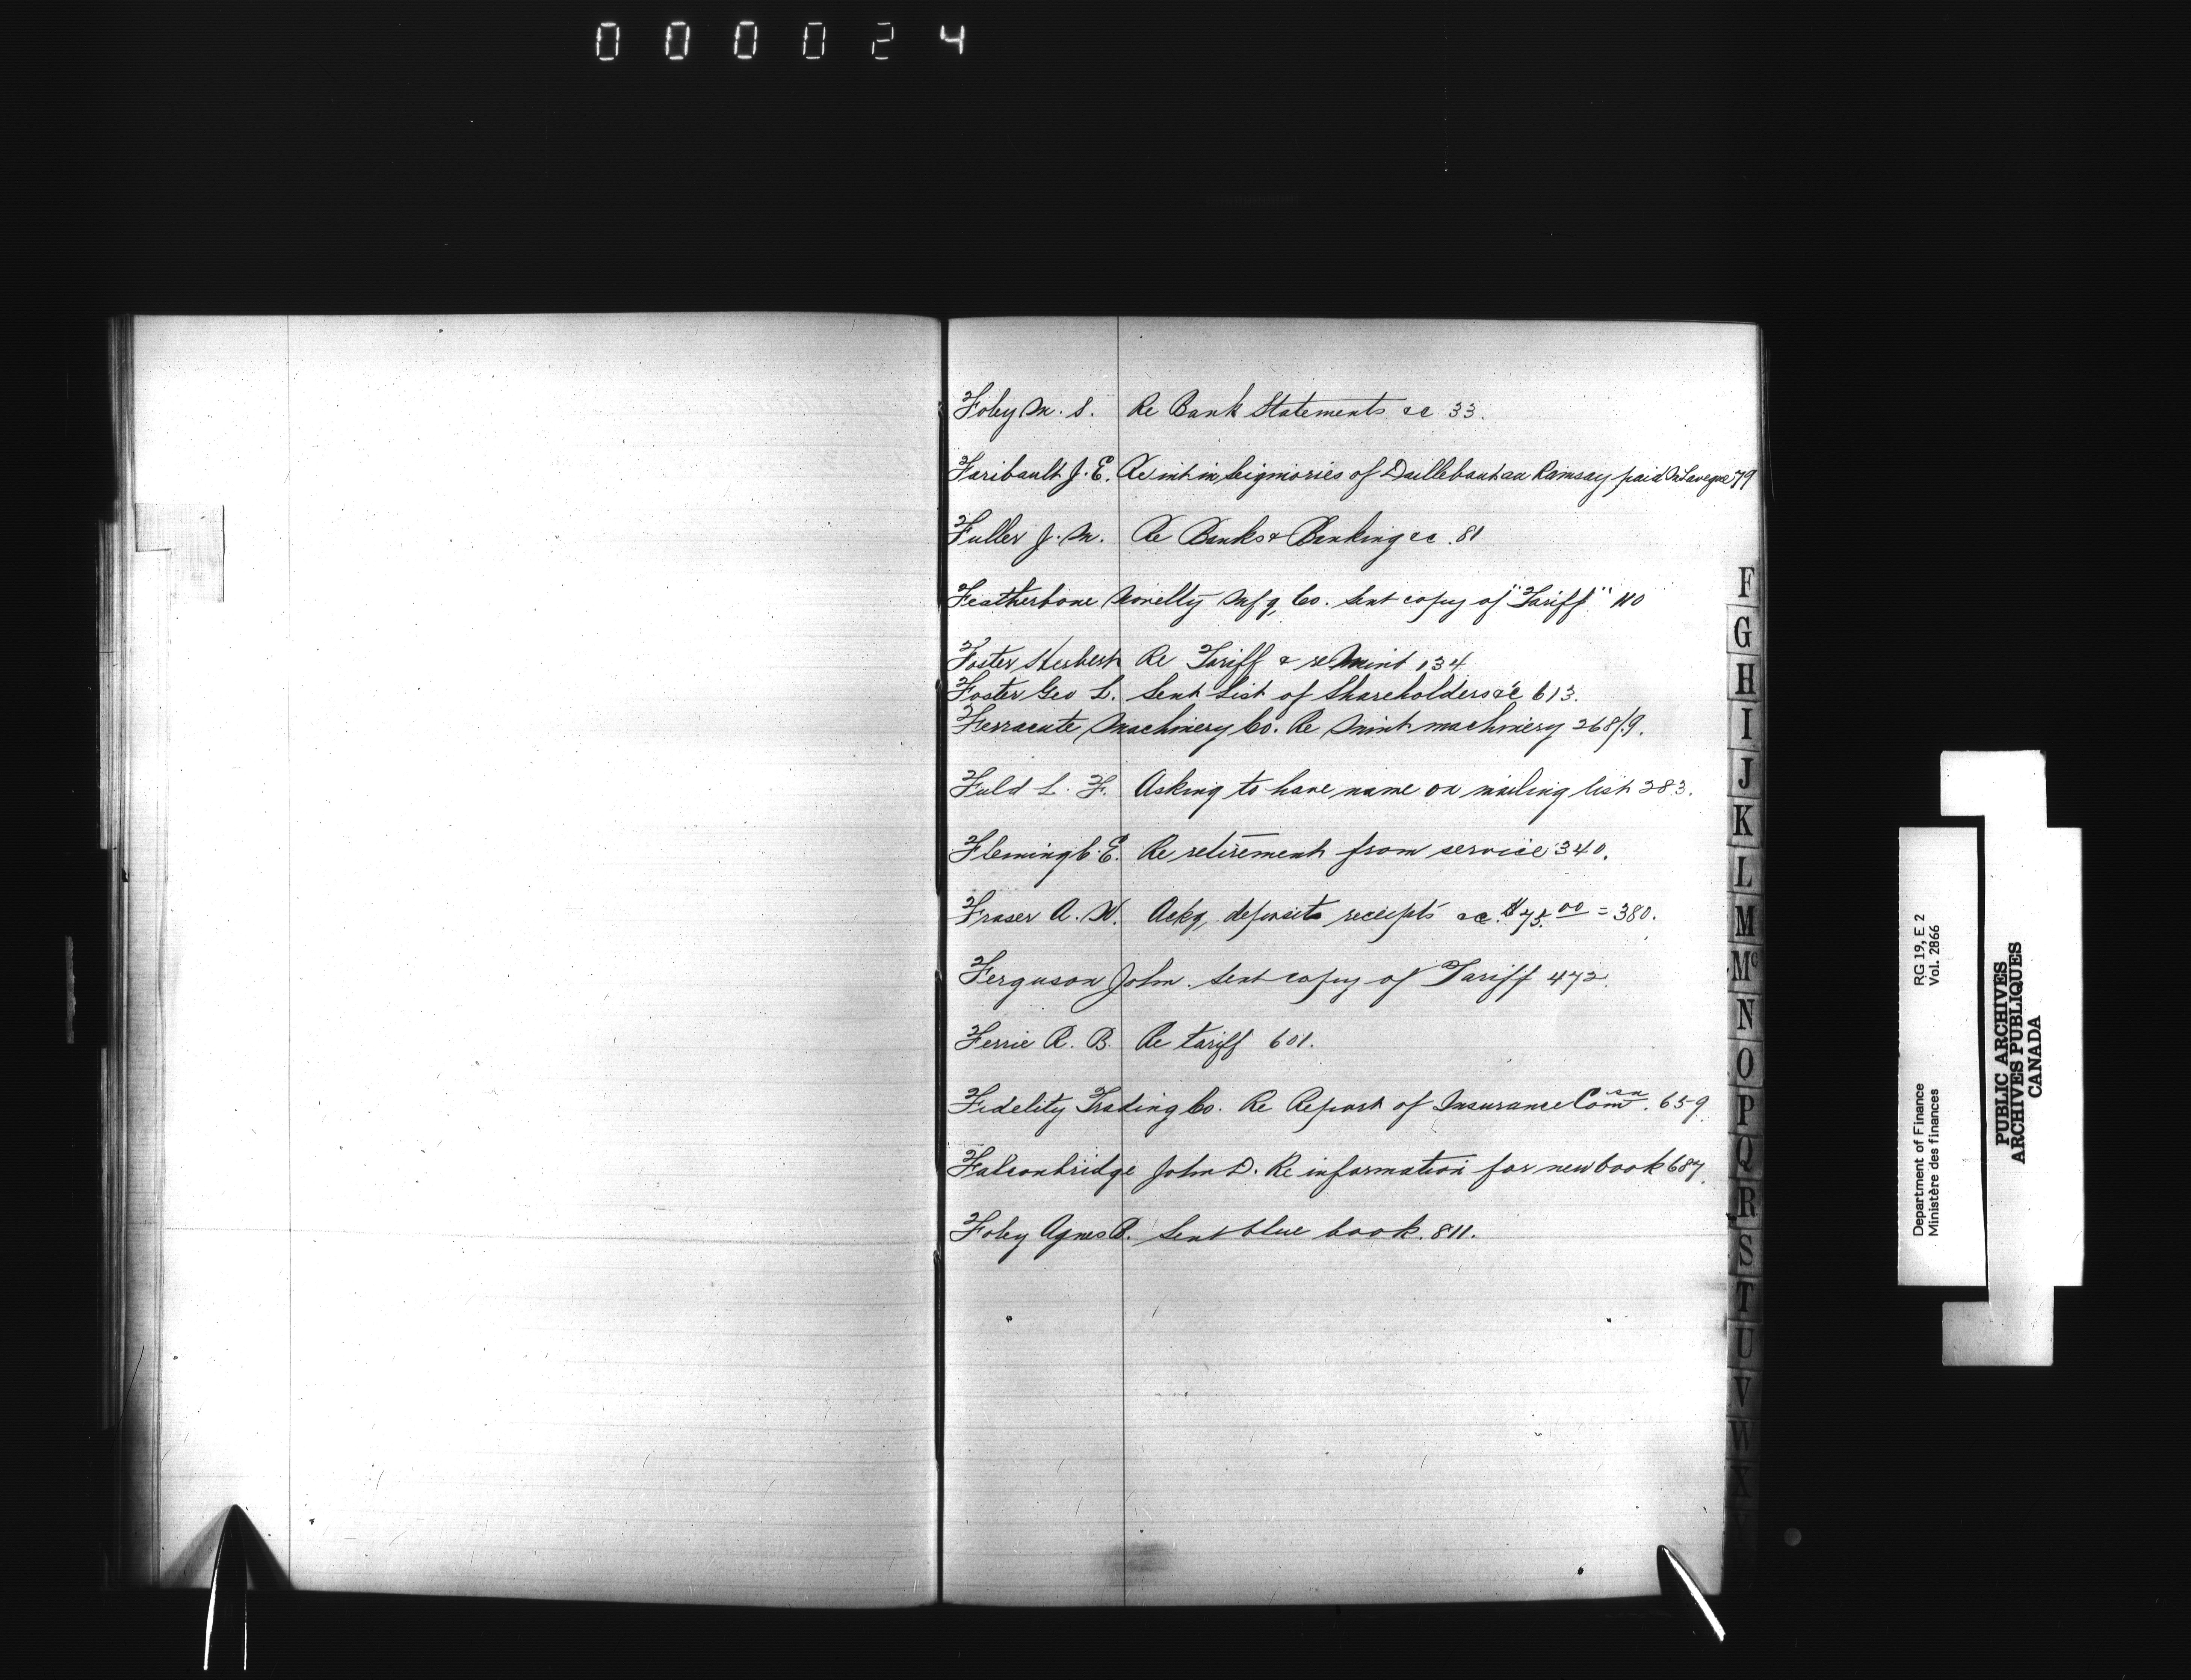 000024
Foley M. S. Re Bank Statements &c 33.
Faribault J. E. Re int in Seigniories of Daillebout au Ramsay paid 79
Fuller J. M. Re Banks & Banking &c. 81
Featherbone Novelty Mfg, Co. Sent copy of "Tariff" 110
Foster Herbert Re Tariff & re Mint 134
Foster Geo L. Sent List of Shareholders &c 613.
Ferracute Machinery Co. Re Mint machinery 268/9.
Fuld L. F. Asking to have name on mailing list 283.
Fleming C. E. Re retirement from service 340.
Fraser A. W. Ackg, deposits receipts &c. $75.00 = 380.
Ferguson John. Sent copy of Tariff 472.
Ferrie R. B. Re tariff 601.
Fidelity Trading Co. Re Report of Insurance Comsn. 659
Falconbridge John D. Re information for new book 687.
Foley Agnes B. Sent blue book. 811.
F
G
H
I
J
K
L
M
Mc
N
O
P
Q
R
S
T
U
V
W
X
Department of Finance RG 19, E 2
Ministère des finances Vol. 2866
PUBLIC ARCHIVES
ARCHIVES PUBLIQUES
CANADA